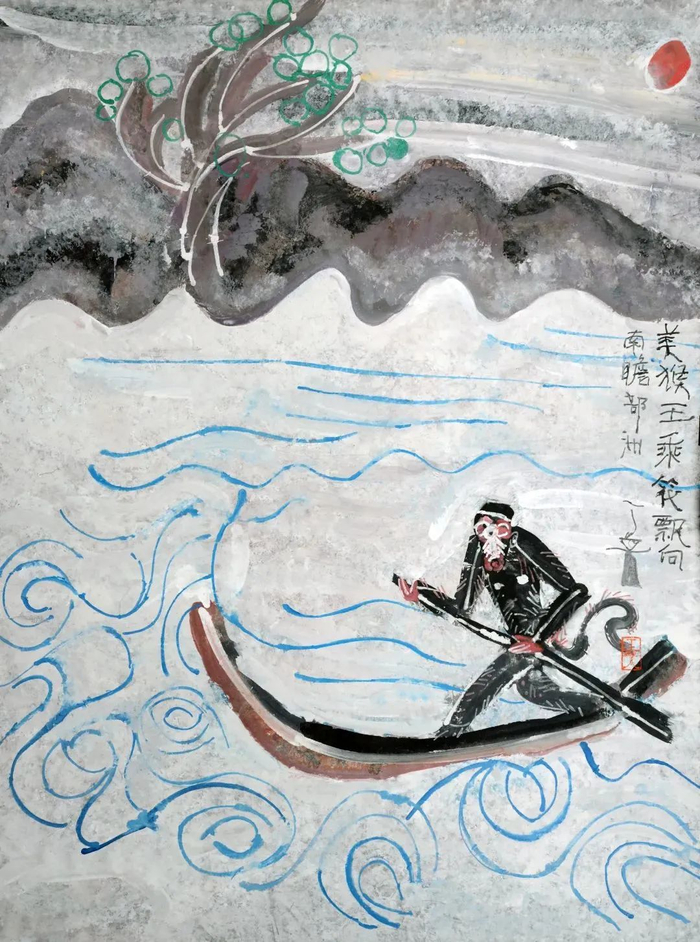 美猴王乘筏飘向
南瞻部洲